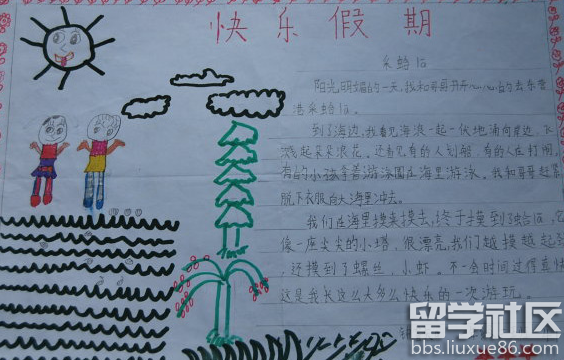 快乐假期
采蛤陷
阳光明媚的一天,我和哥哥开开心心的去东营
港采蛤陷。
到了海边,我看见海浪一起一伏地涌向岸边,飞
溅起朵朵浪花。还看见有的人划船,有的人在打闹,
有的小孩拿着游泳圈在海里游泳。我和哥哥赶
脱下衣服,向大海里冲去。
我们在海里摸来摸去,终于摸到了蛤陷,它
像一座尖尖的小塔,很漂亮,我们越摸越起
,还摸到了螺丝、小虾。不一会时间过得真快
这是我长这么大多么快乐的一次游玩。
留学社区
bbs.liuxue86.com